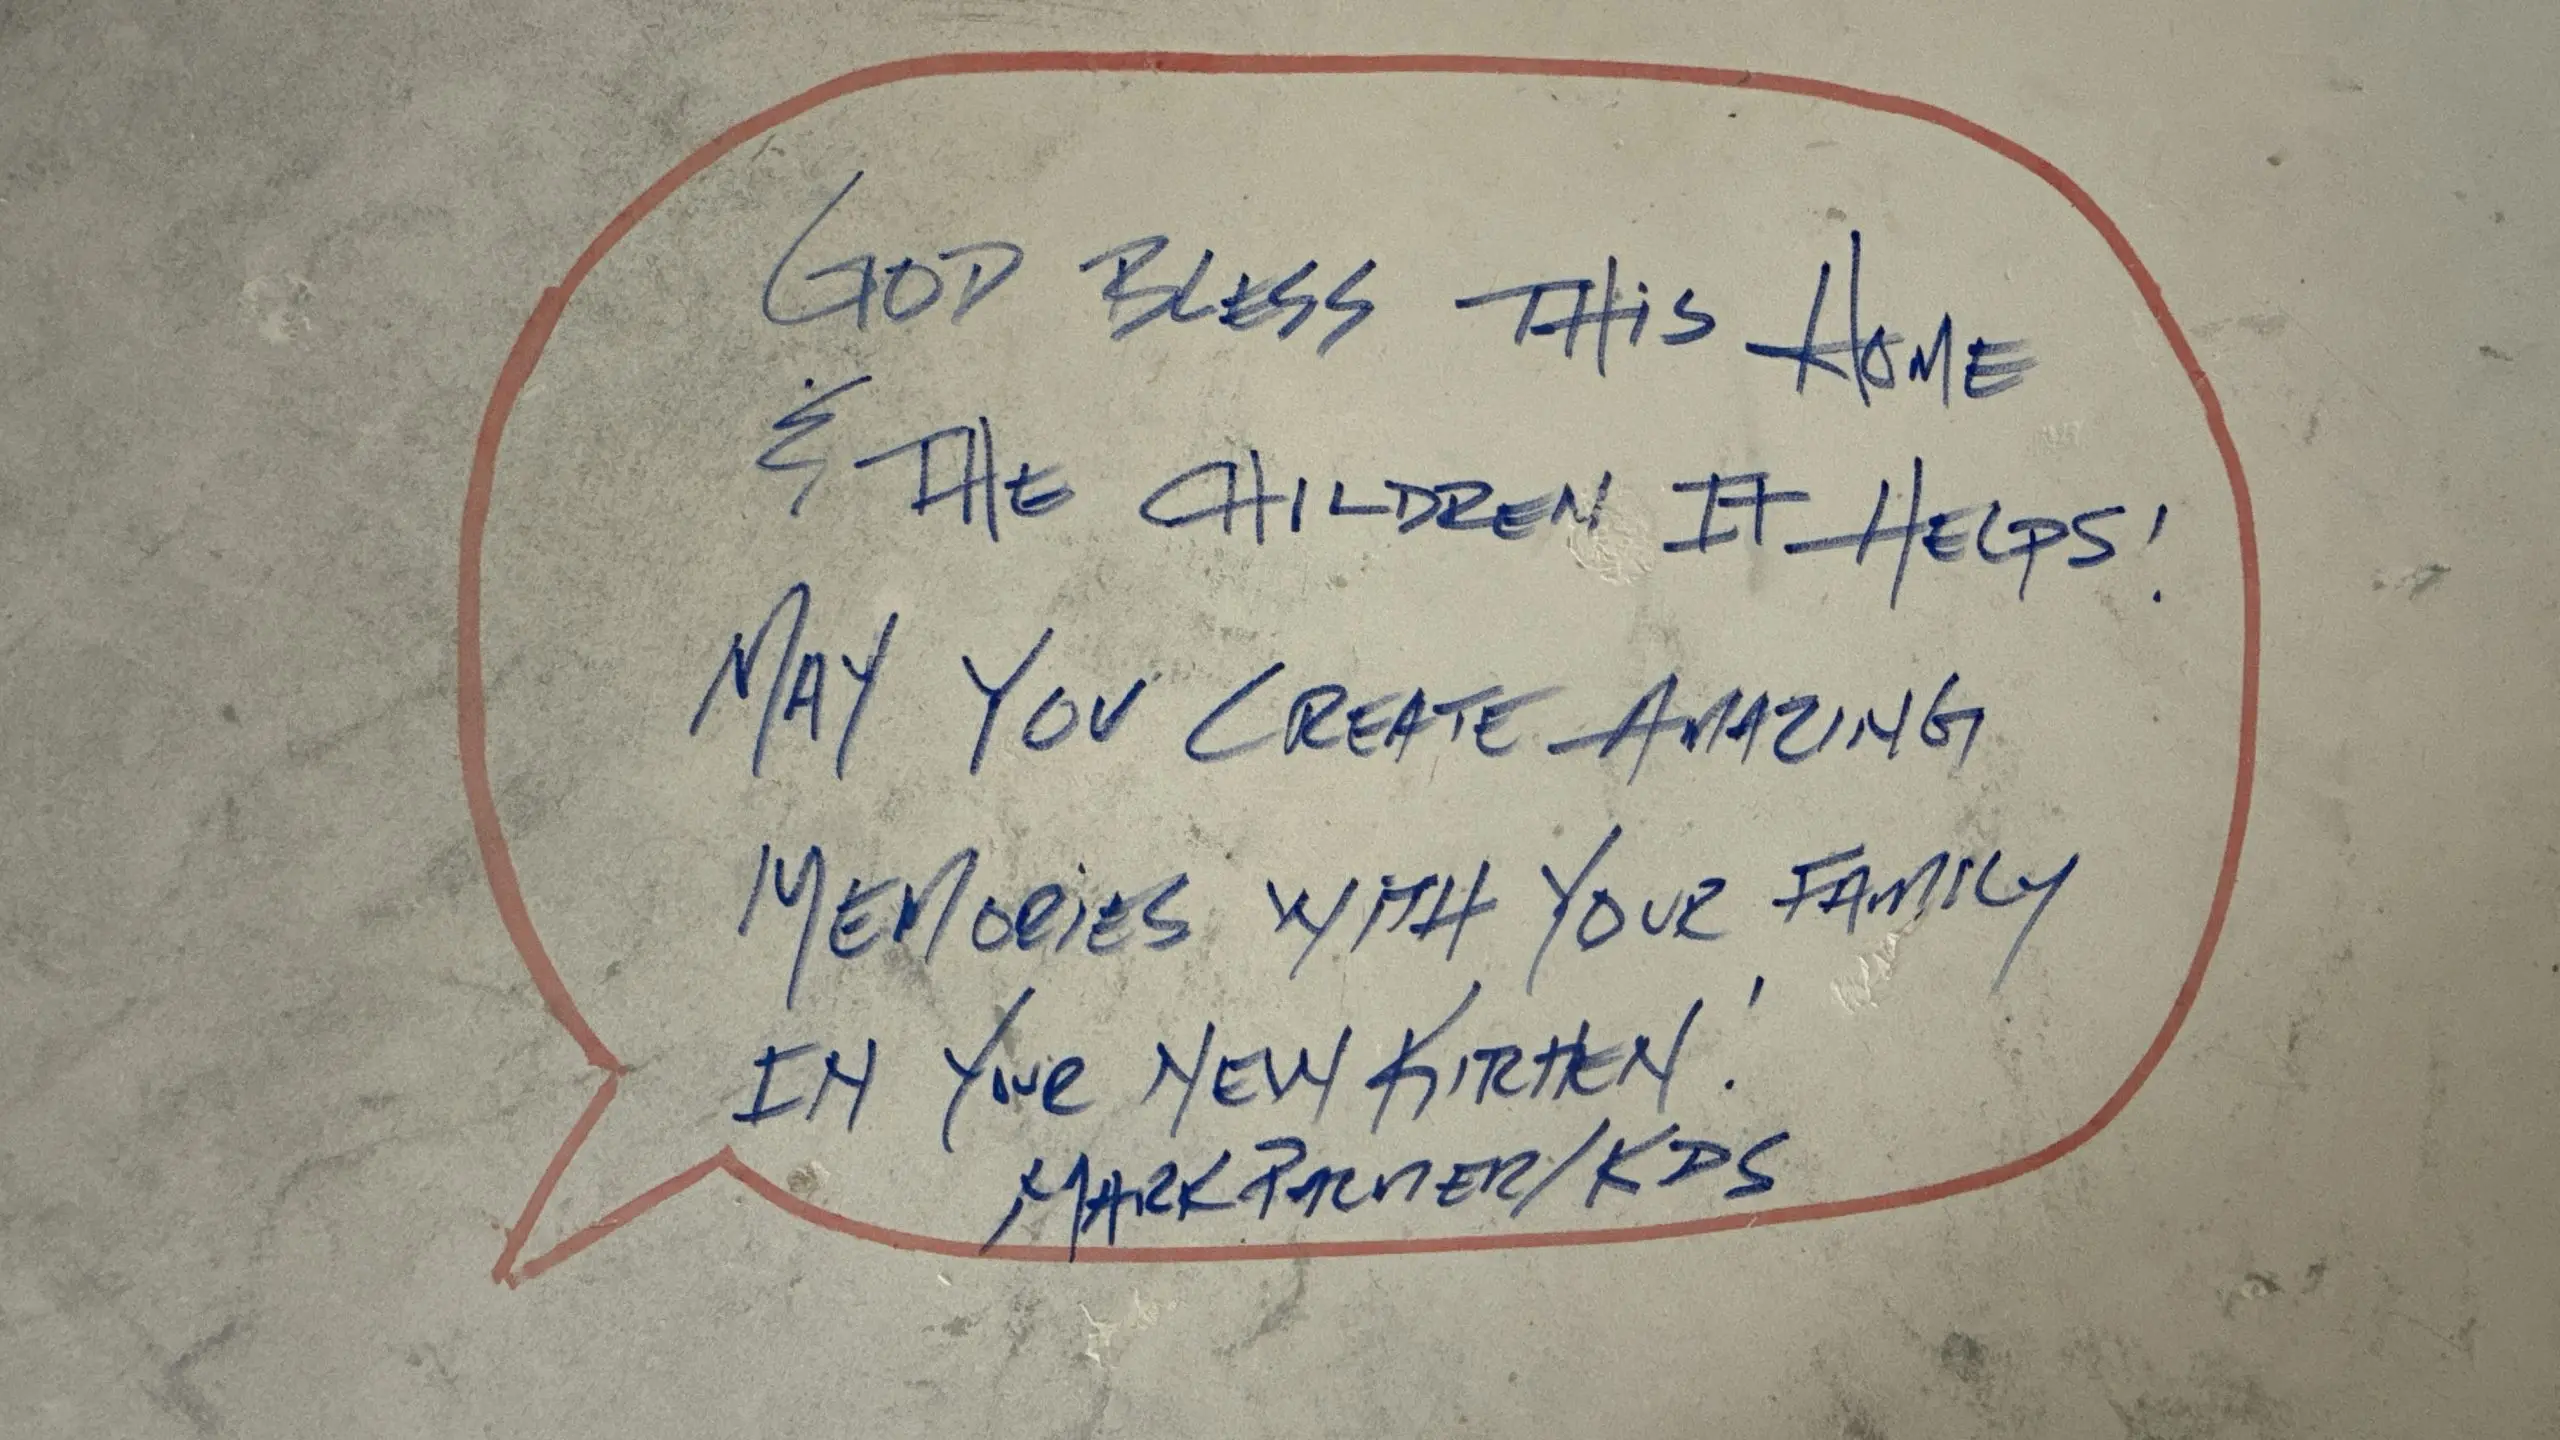 GOD BLESS THIS HOME
& THE CHILDREN IT HELPS!
MAY YOU CREATE AMAZING
MEMORIES WITH YOUR FAMILY
IN YOUR NEW KITCHEN!
MARK /KDS